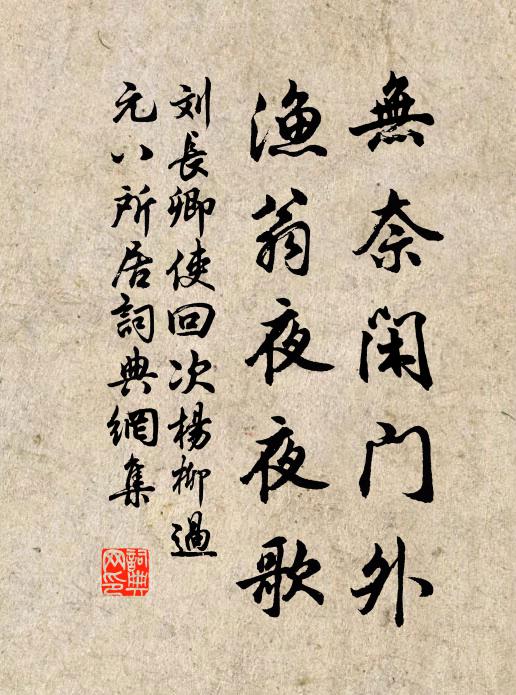 無奈闲门外
漁翁夜夜歌
刘長卿使回次楊柳過
元八所居詞典網集
詞典网印